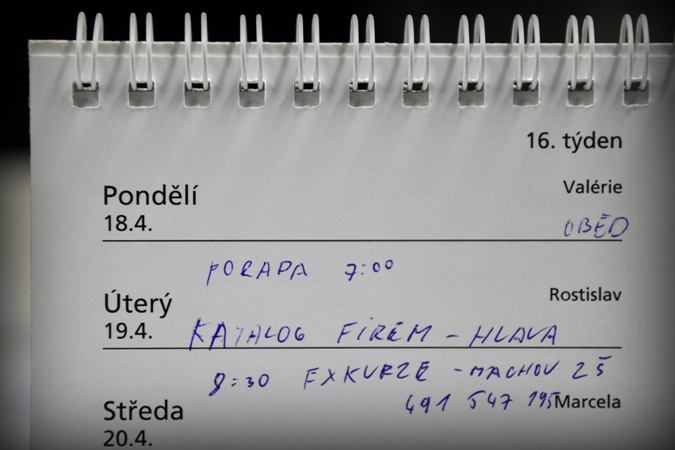 16. týden
Pondělí Valérie
18.4. OBĚD
PORADA 7:00
Úterý Rostislav
19.4. KATALOG FIREM - HLAVA
8:30 EXKURZE - MACHOV ZŠ
491 547 195 Marcela
Středa
20.4.